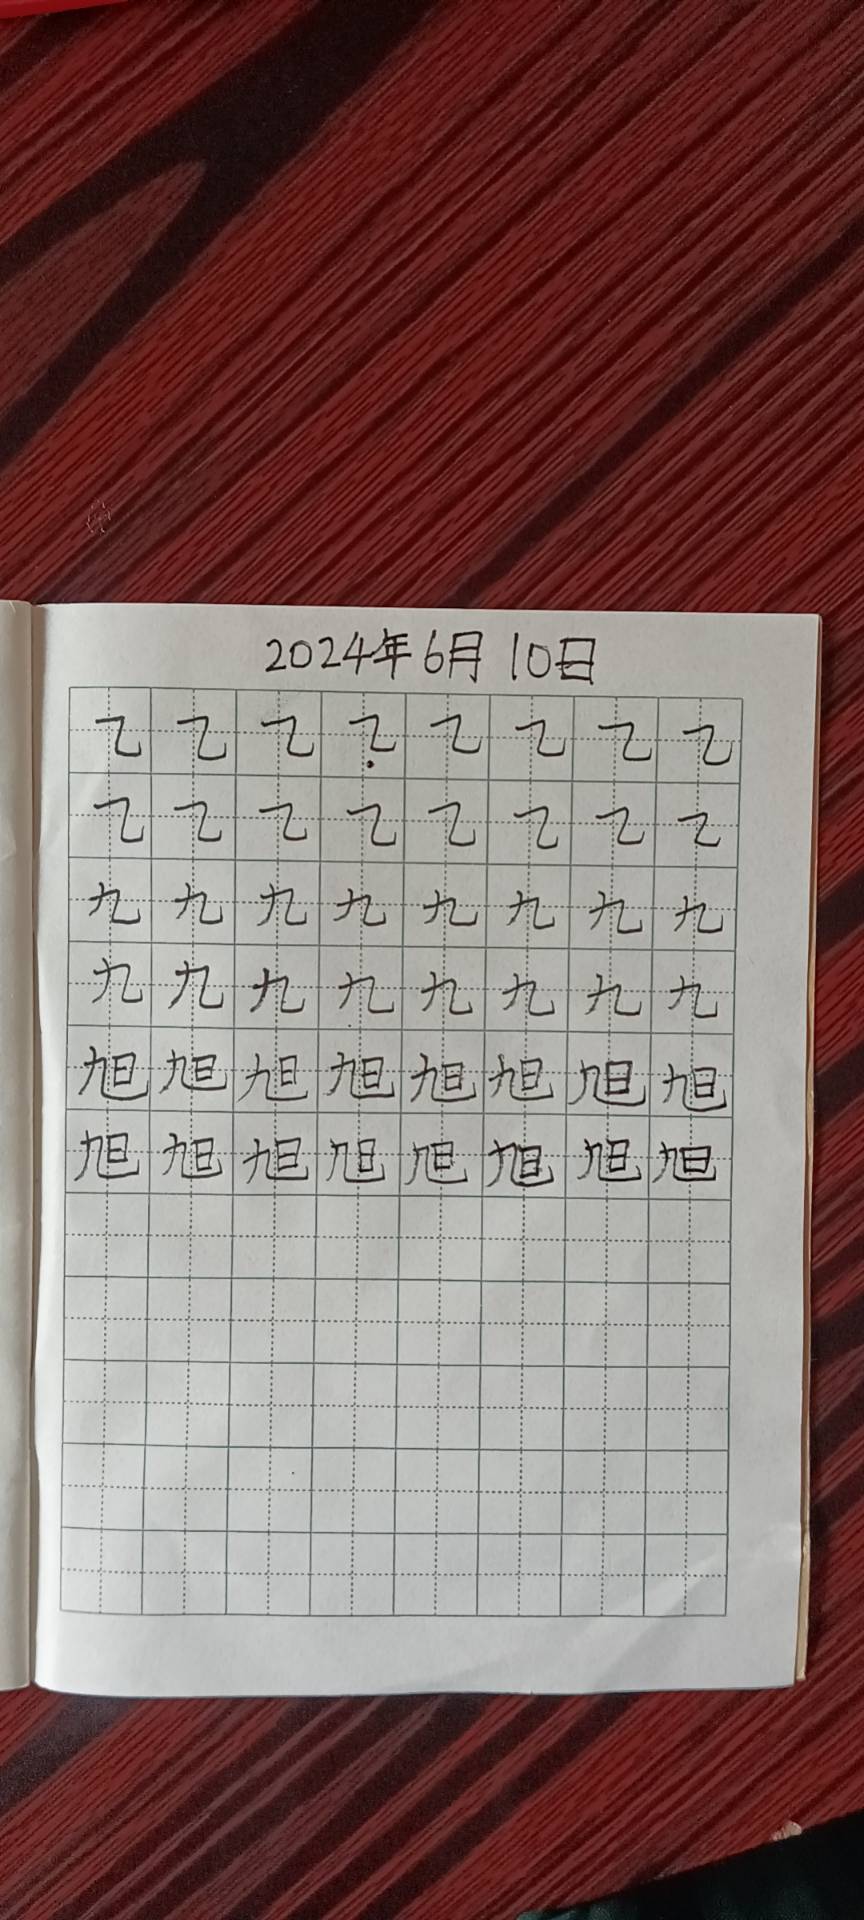 2024年6月10日
乙乙乙乙乙乙乙乙
乙乙乙乙乙乙乙乙
九九九九九九九九
九九九九九九九九
旭旭旭旭旭旭旭旭
旭旭旭旭旭旭旭旭